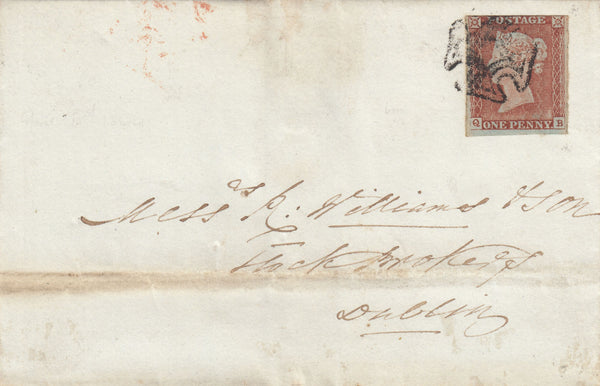 POSTAGE
Q ONE PENNY B
Mess^rs R: Williams & Son
Stock Brokers
Dublin